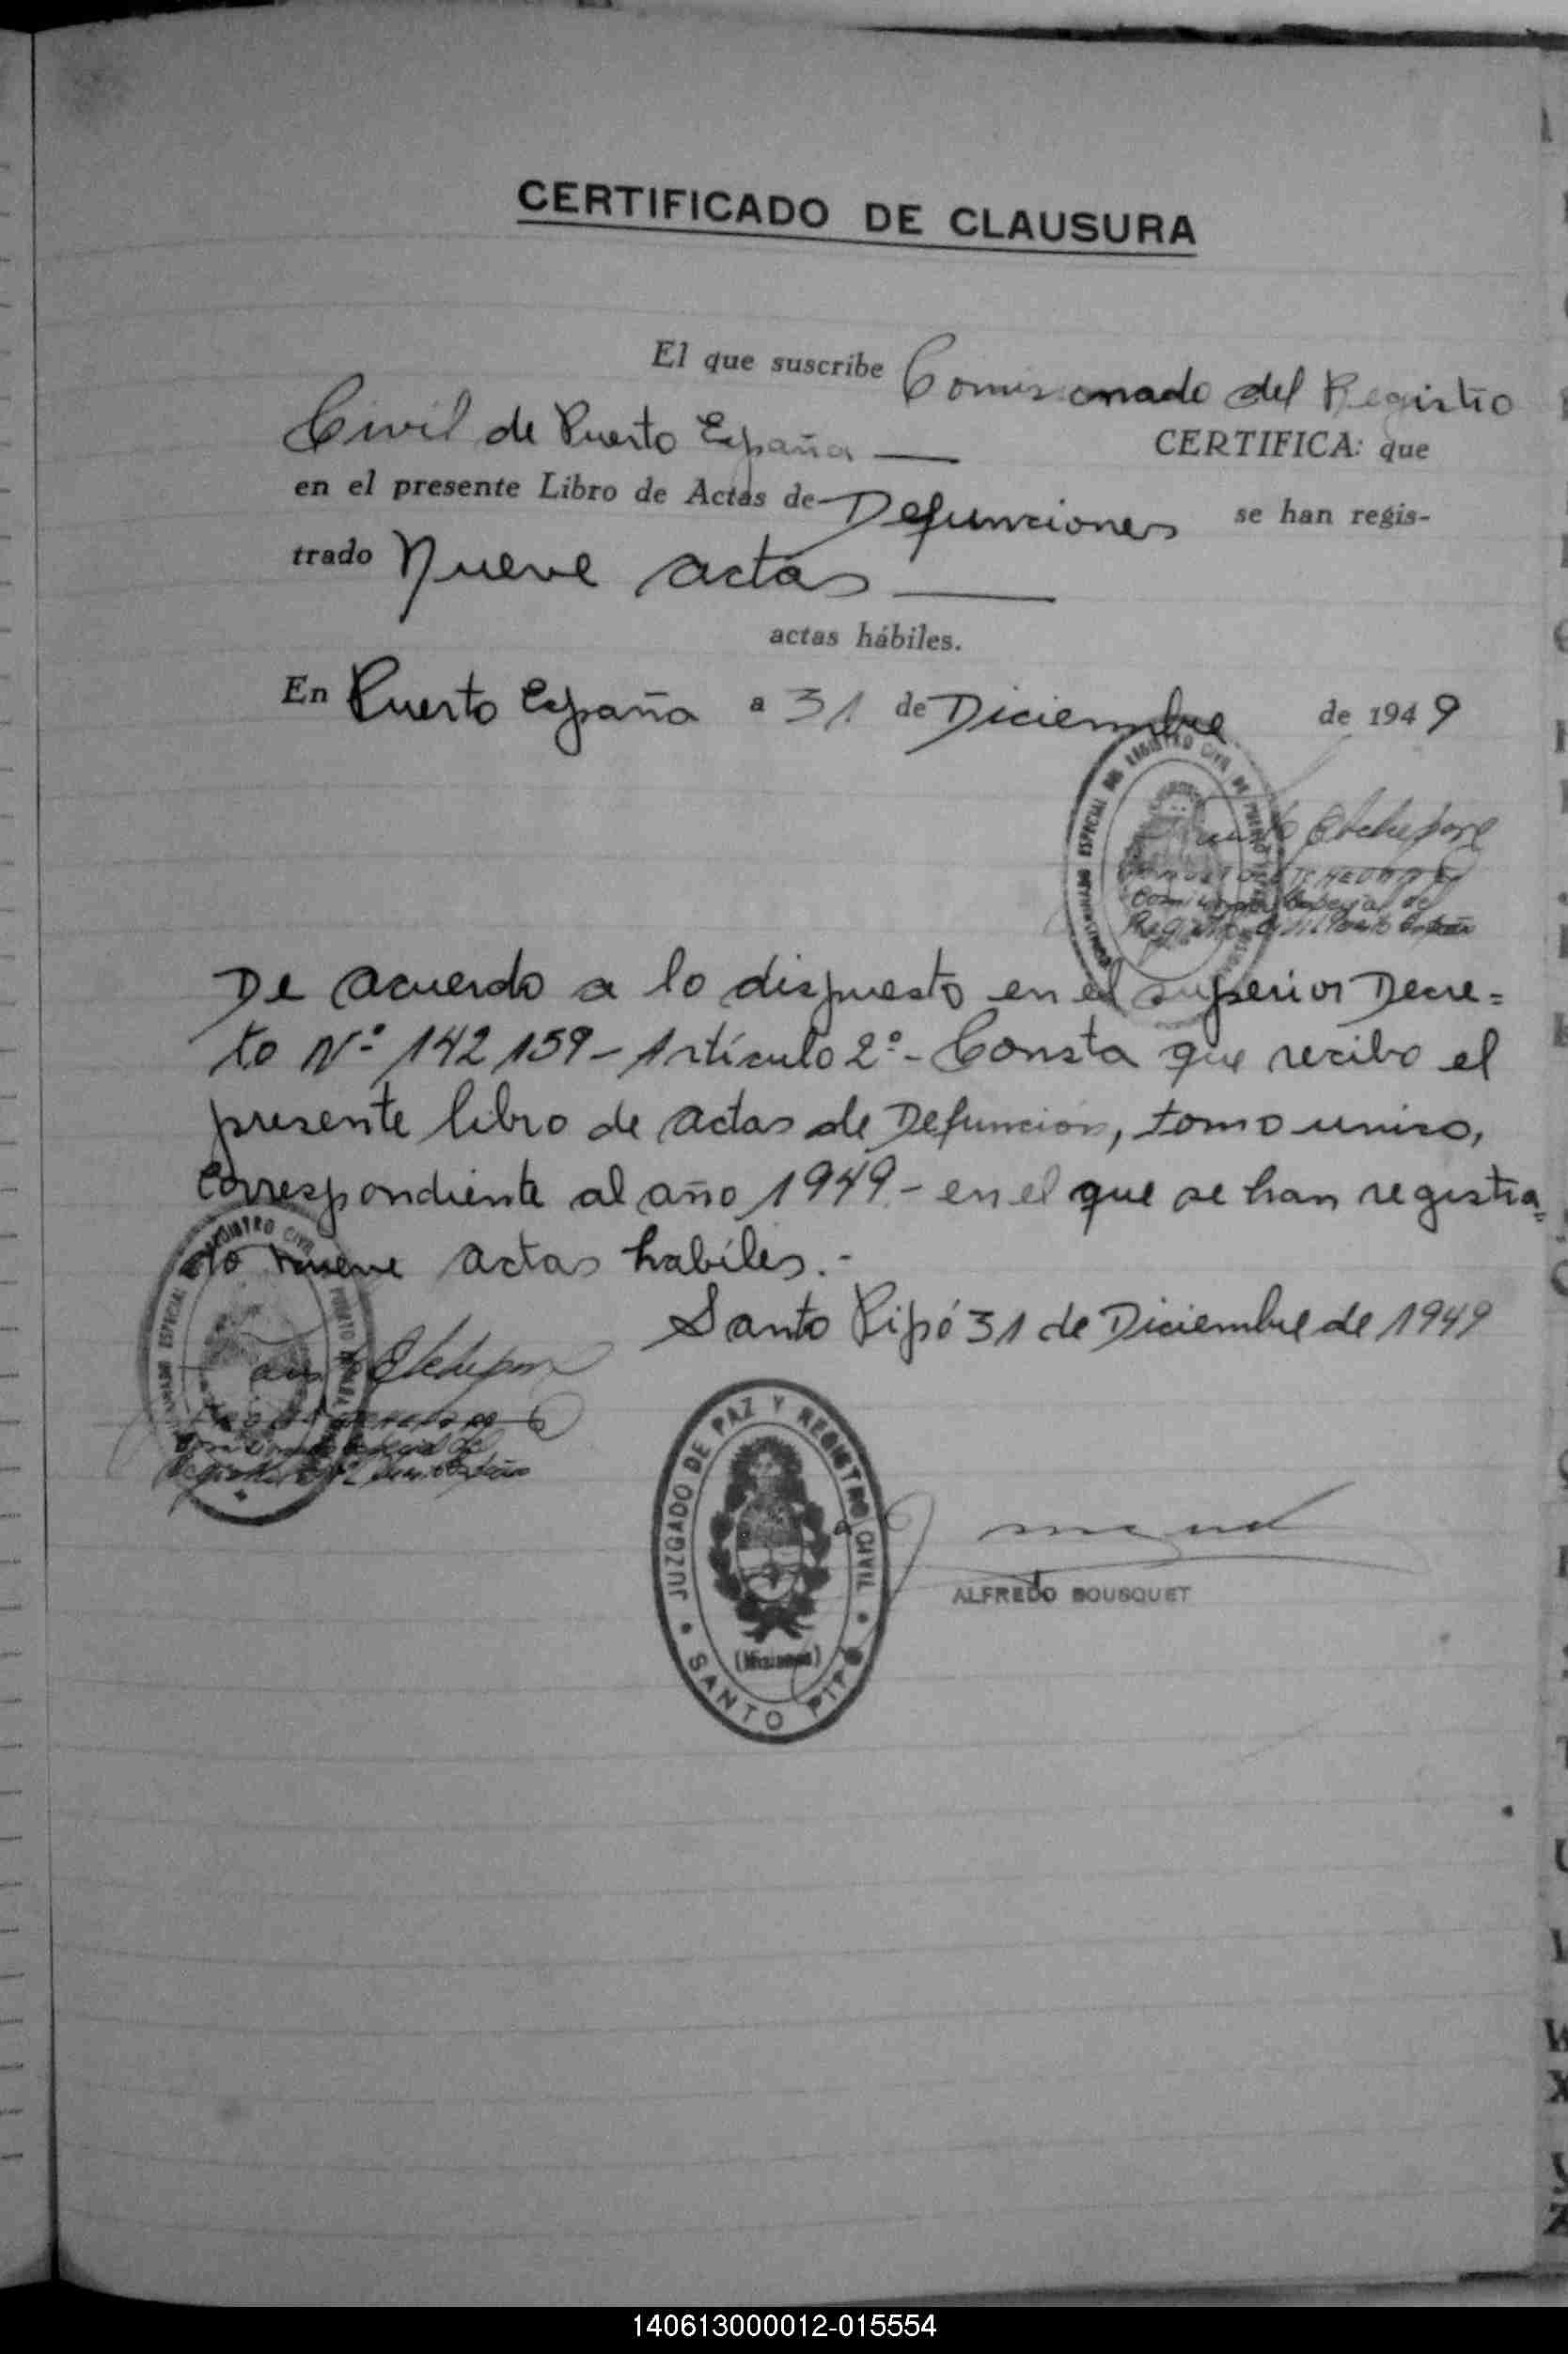 CERTIFICADO DE CLAUSURA
El que suscribe Comisionado del Registro
Civil de Puerto España — CERTIFICA: que
en el presente Libro de Actas de Defunciones se han regis-
trado Nueve actas —
actas hábiles.
En Puerto España a 31 de Diciembre de 1949
COMISIONADO ESPECIAL DEL REGISTRO CIVIL DE PUERTO ESPAÑA
Comisionado Especial del
Registro Civil Puerto España
De acuerdo a lo dispuesto en el superior Decre=
to Nº 142159 - Artículo 2º - Consta que recibo el
presente libro de actas de Defuncion, tomo unico,
Correspondiente al año 1949.- en el que se han registra=
do nueve actas habiles.-
Santo Pipó 31 de Diciembre de 1949
COMISIONADO ESPECIAL DEL REGISTRO CIVIL PUERTO ESPAÑA
Comisionado Especial del
Registro Civil Puerto España
JUZGADO DE PAZ Y REGISTRO CIVIL
(Misiones)
SANTO PIPÓ
ALFREDO BOUSQUET
140613000012-015554